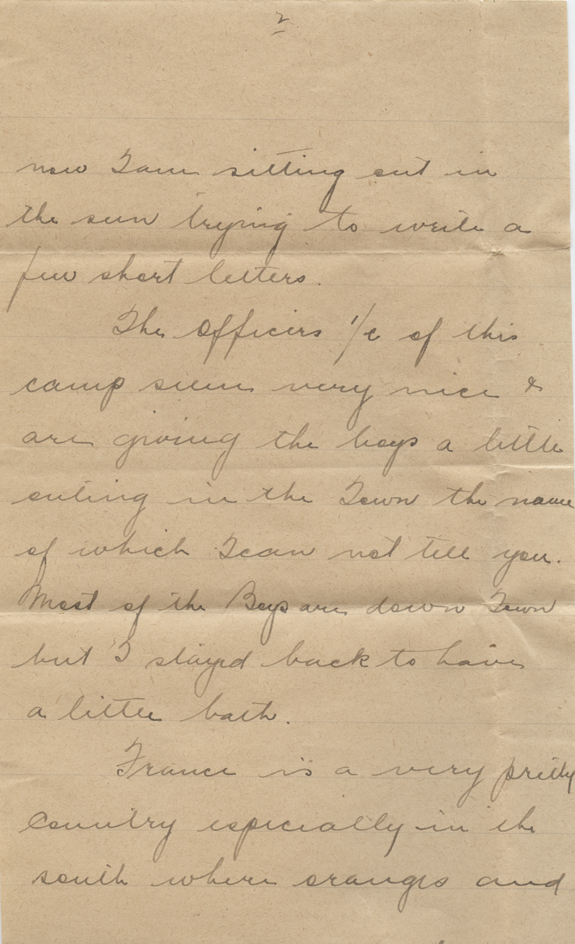 2
now I am sitting out in
the sun trying to write a
few short letters.
The Officers i/c of this
camp seem very nice &
are giving the boys a little
outing in the Town the name
of which I can not tell you.
Most of the Boys are down Town
but I stayed back to have
a little bath.
France is a very pretty
country especially in the
south where oranges and